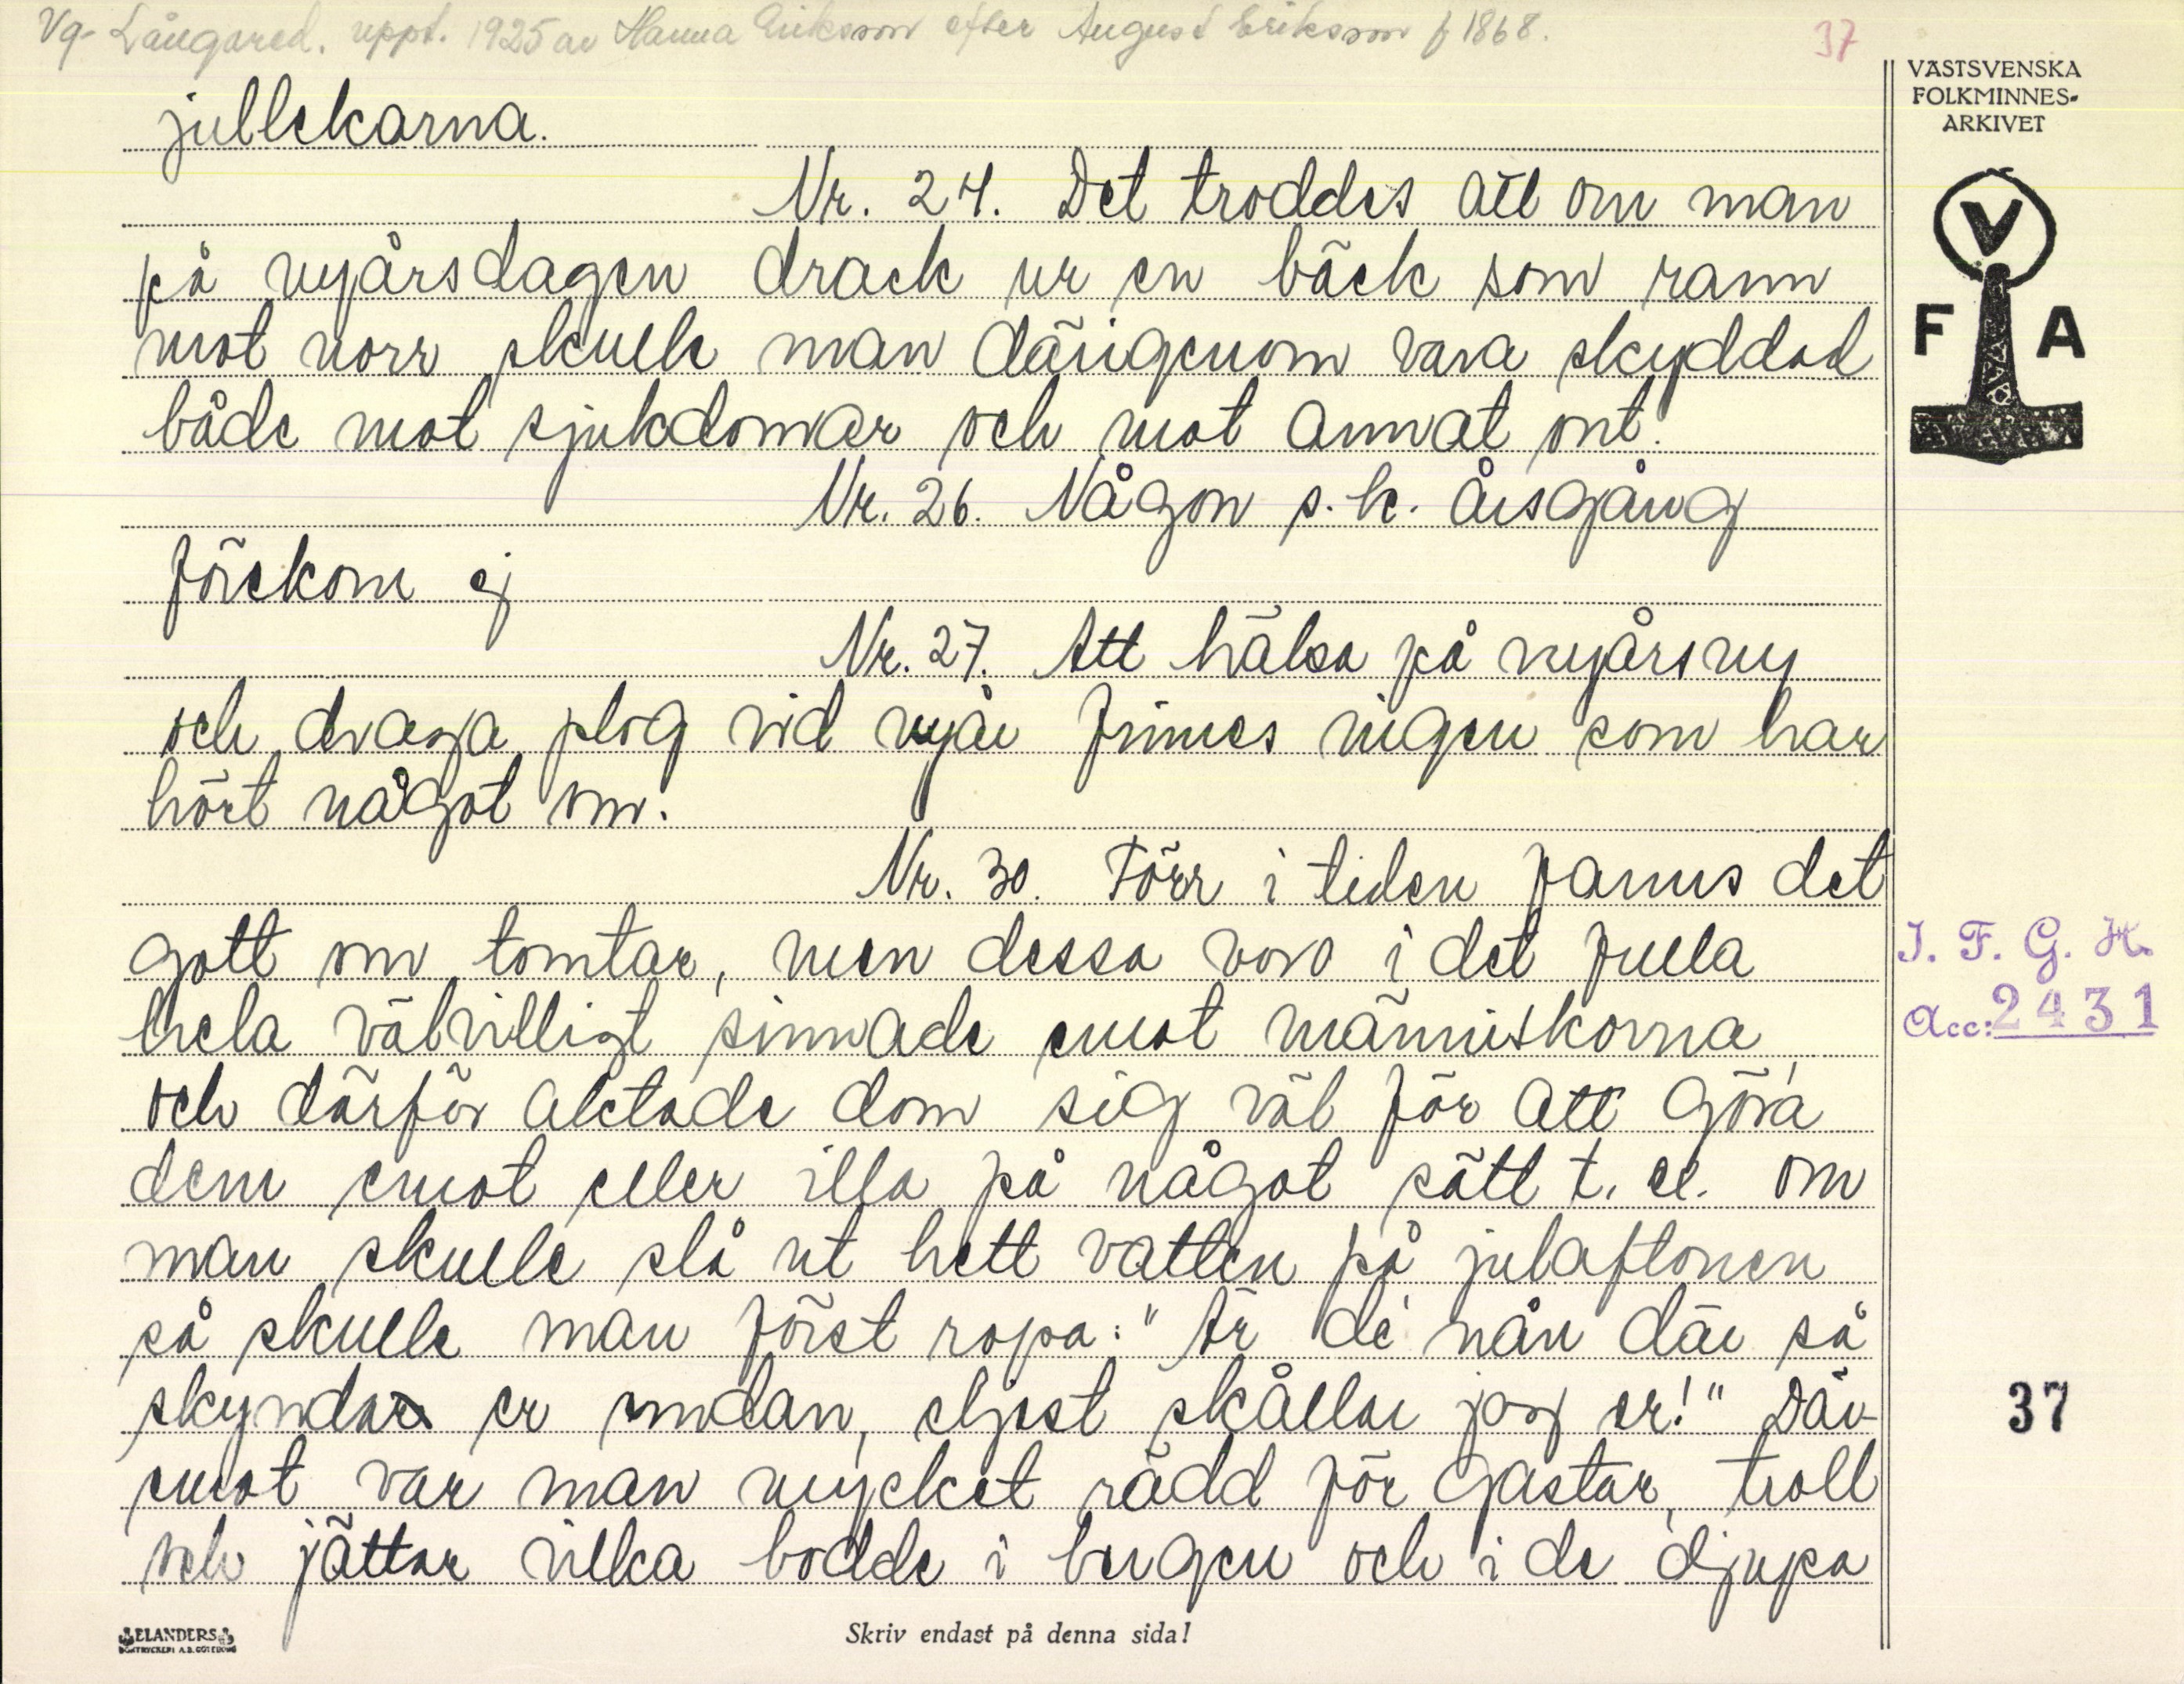 Vg. Långared. uppt. 1925 av Hanna Eriksson efter August Eriksson f 1868.
37
VÄSTSVENSKA
FOLKMINNES-
ARKIVET
V
F A
jullekarna.
Nr. 24. Det troddes att om man
på nyårsdagen drack ur en bäck som rann
mot norr skulle man därigenom vara skyddad
både mot sjukdomar och mot annat ont.
Nr. 26. Någon s.k. årsgång
förekom ej
Nr. 27. Att hälsa på nyårsny
och draga plog vid nyår finnes ingen som har
hört något om.
Nr. 30. Förr i tiden fanns det
gott om tomtar, men dessa voro i det fulla
hela välvilligt sinnade emot människorna,
och därför aktade dom sig väl för att göra
dem emot eller illa på något sätt t. ex. om
man skulle slå ut hett vatten på julaftonen
så skulle man först ropa: "Är dé nån där så
skynda er undan, eljest skållar jag er!" Där-
emot var man mycket rädd för gastar, troll
och jättar vilka bodde i bergen och i de djupa
I. F. G. H.
Acc: 2431
37
ELANDERS
BOKTRYCKERI A.B. GÖTEBORG
Skriv endast på denna sida!